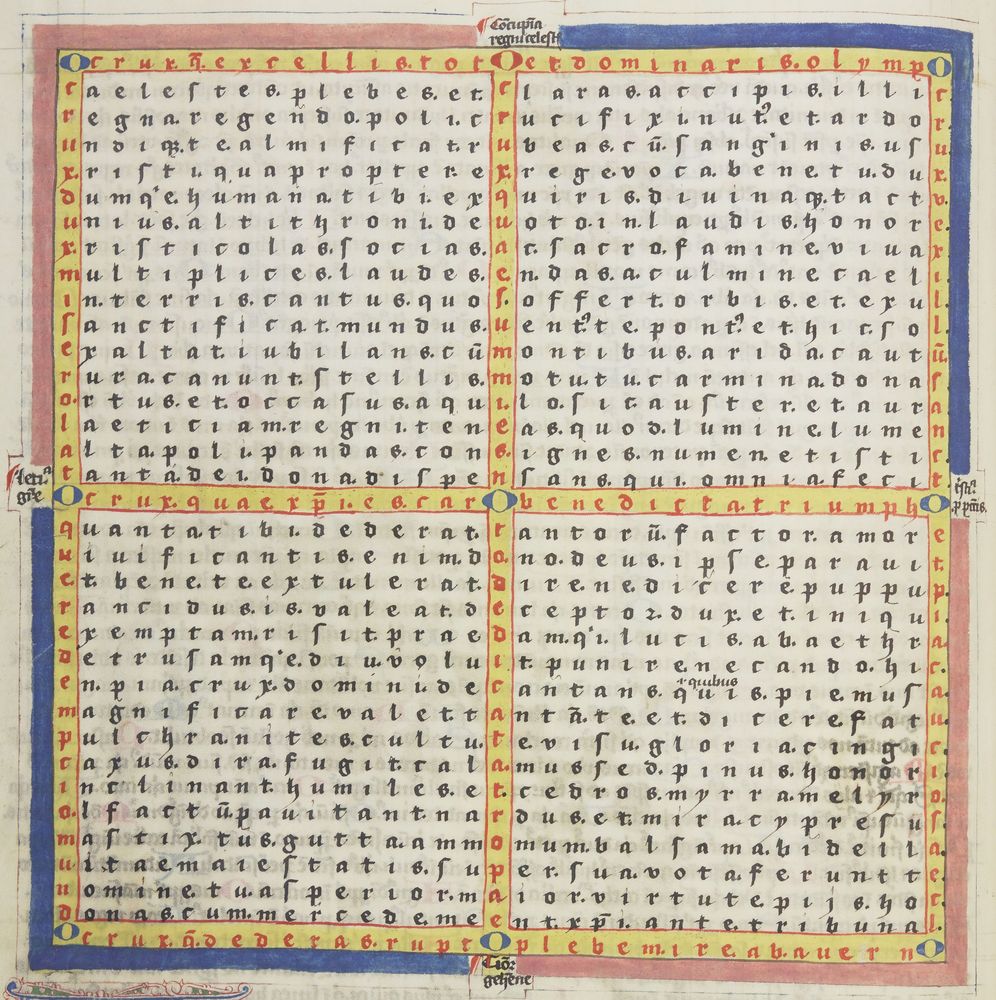 Cōcupīa
regni celestis
Ocrux.q̄.excellis.totOet.dominaris.olympO
caelestes.plebes.et.claras.accipis.illic
regna.regendo.poli.crucifixi.nut᾿.et.ardor
undiq;.te.almificat.rubeas.cū.sanginis.usu
xristi.qua.propter.exrege.voca.bene.tu.dux.
dumq'e.humana.tibi.exquiris.diuinaq;.tactv
unius.altithroni.deuoto.in.laudis.honore
xristicolas.socias.ac.sacro.famine.viuax
multiplices.laudes.endas.a.culmine.caeli
in.terris.cantus.quos.offert.orbis.et.exul
sanctificat.mundus.uent᾿.te.pont᾿.et.hic.sol
exaltat.iubilans.cūmontibus.arida.cautū
rura.canunt.stellis.motu.tu.carmina.donas
ortus.et.occasus.aquilo.sic.auster.et.aura
laeticiam.regni.teneas.quod.lumine.lumen
alta.poli.pandas.consignes.numen.et.istic
tanta.dei.dona.dispensans.qui.omnia.fecit
Ocrux.quae.xp̄i.es.carObenedicta.triumphO
quanta.tibi.dederat.tantorū.factor.amore
uiuificantis.enim.dono.deus.ipse.parauit
et.bene.te.extulerat.direne.dicere.puppup
rancidus.is.valeat.deceptor.dux.et.iniqui
exemptam.risit.praedam.q'i.lucis.ab.aethra
detrusam.q'e.diu.voluit.punire.necando.hic
i. quibus
en.pia.crux.domini.decantans.quis.piemusa
magnificare.valet.tantā.te.et.dicere.fatu
pulchra.nites.cultu.te.visu.gloria.cingic
caxus.dira.fugit.calamus.sed.pinus.honori
inclinant.humiles.etcedros.myrra.melyro
olfactū.pautant.nardus.et.mira.cypresus
mastix.tus.gutta.ammomum.balsama.bideila
uitae.maiestatis.super.sua.vota.ferunt.te
nomine.tuas.perior.maior.virtute.pijs.hoc
donas.cum.mercede.meent.xp̄i.ante.tribunal
Ocrux.q̄.dederas.ruptOplebem.ire.ab.auernO